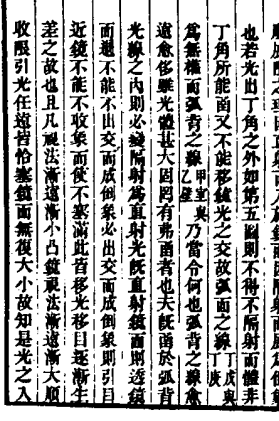 也若光出丁角之外如第五圖則不得不隔射而體非
丁角所能函又不能移鏡光之交故弧面之線丁戊與丁庚
為無權而弧背之線甲壬與乙壬乃當令何也弧背之線愈
遠愈侈雖光體甚大固罔有弗函者也夫既函於弧背
光線之內則必變隔射為直射光既直射鏡面則透鏡
而過不能不出交而成倒象必出交而成倒象則引目
近鏡不能不收象而使不塞滿此皆移光移目逐漸生
差之故也且凡視法漸遠漸小凸鏡視法漸遠漸大順
收限引光任遠皆恰塞鏡面無復大小故知是光之入